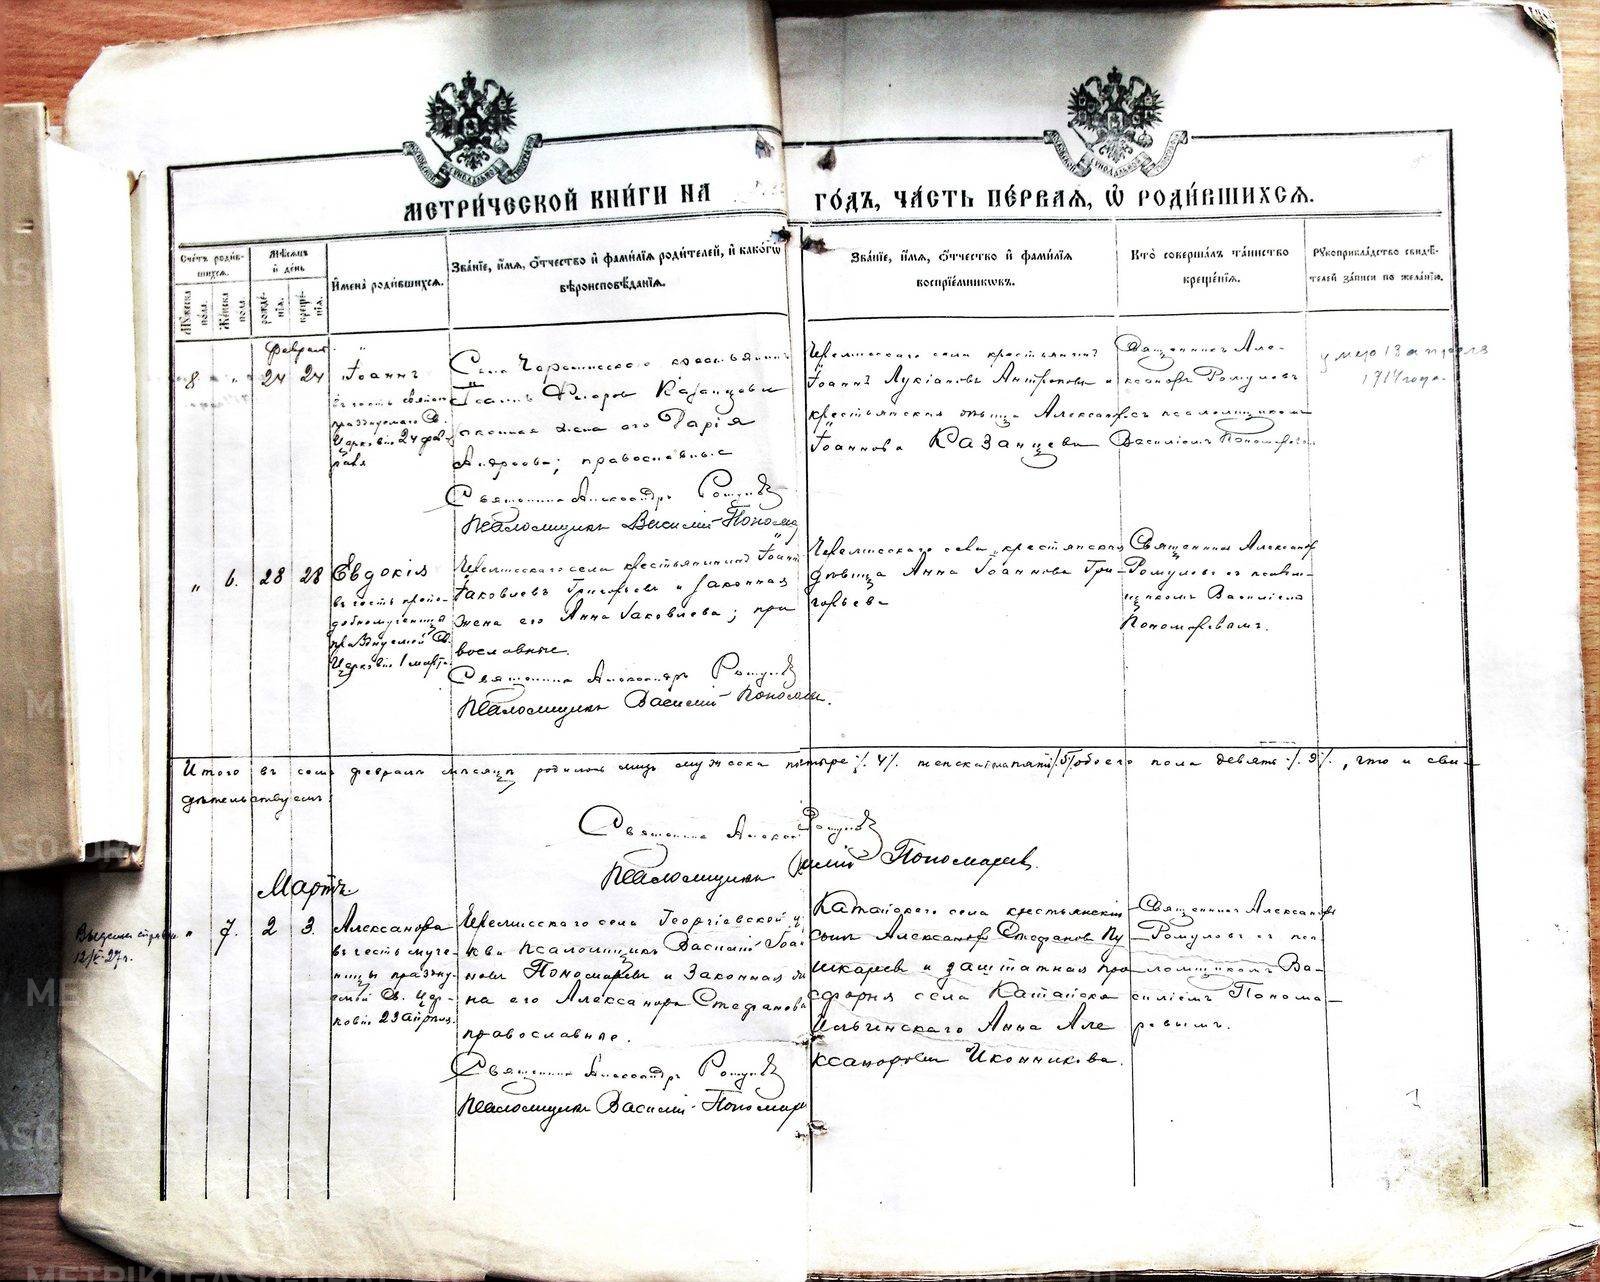 МЕТРИ́ЧЕСКОЙ КНИ́ГИ НА
ГО́ДЪ, ЧА́СТЬ ПЕ́РВАЯ, Ѡ҆ РОДИ́ВШИХСЯ.
Сче́тъ роди́в-
шихся.
Му́жеска по́ла.
Же́нска по́ла.
Мѣ́сяцъ и҆ де́нь
рожде́нїя.
креще́нїя.
И҆мена̀ роди́вшихся.
Зва́нїе, и҆́мя, ѻ҆́тчество и҆ фами́лїя роди́телей, и҆ како́гѡ
вѣроисповѣ́данїя.
Зва́нїе, и҆́мя, ѻ҆́тчество и҆ фами́лїя
воспрїе́мникѡвъ.
Кто̀ соверша́лъ та́инство
креще́нїя.
Рꙋкоприкла́дство свидѣ́-
телей за́писи по жела́нїю.
Февраль
8 " 24 24
Іоаннъ
въ честь святого
празднуемаго Св.
Церковію 24 фев-
раля
Села Черемисскаго крестьянинъ
Іоаннъ Ѳеодоровъ Казанцевъ и
законная жена его Дарія
Андреева; православные
Священникъ Александръ Ромуловъ
Псаломщикъ Василій Пономар
Черемисскаго села крестьянинъ
Іоаннъ Лукіановъ Антроповъ и
крестьянская дѣвица Александра
Іоаннова Казанцева
Священникъ Але-
ксандръ Ромуловъ
съ псаломщикомъ
Василіемъ Пономаревымъ
умеръ 13 апреля
1914 года.
" 6. 28 28
Евдокія
въ честь препо-
добномученицы
празднуемой Св.
Церковію 1 марта.
Черемисскаго села крестьянинъ Іоаннъ
Іаковлевъ Григорьевъ и законная
жена его Анна Іаковлева; пра
вославные.
Священникъ Александръ Ромуловъ
Псаломщикъ Василій Пономар.
Черемисскаго села крестьянская
дѣвица Анна Іоаннова Гри-
горьева
Священникъ Александръ
Ромуловъ съ псалом-
щикомъ Василіемъ
Пономаревымъ.
Итого въ семъ февралѣ мѣсяцѣ родилось лицъ мужеска четыре ./. 4 ./. женска пять ./. 5 ./. обоего пола девять ./. 9 ./. , что и сви-
дѣтельствуемъ
Священникъ Александръ Ромуловъ
Псаломщикъ Василій Пономаревъ
Мартъ
" 7. 2 3
Александра
въ честь муче-
ницы праздну-
емой Св. Цер-
ковію 23 апрѣля.
Черемисскаго села Георгіевской цер
кви псаломщикъ Василій Іоан
новъ Пономаревъ и законная же
на его Александра Стефанова
православные.
Священникъ Александръ Ромуловъ
Псаломщикъ Василій Пономаре
Катайскаго села крестьянскій
сынъ Александръ Стефановъ Пу
шкаревъ и заштатная про
сфорня села Катайска
Ильинскаго Анна Але
ксандрова Иконникова.
Священникъ Александръ
Ромуловъ съ пса
ломщикомъ Ва-
силіемъ Понома-
ревымъ.